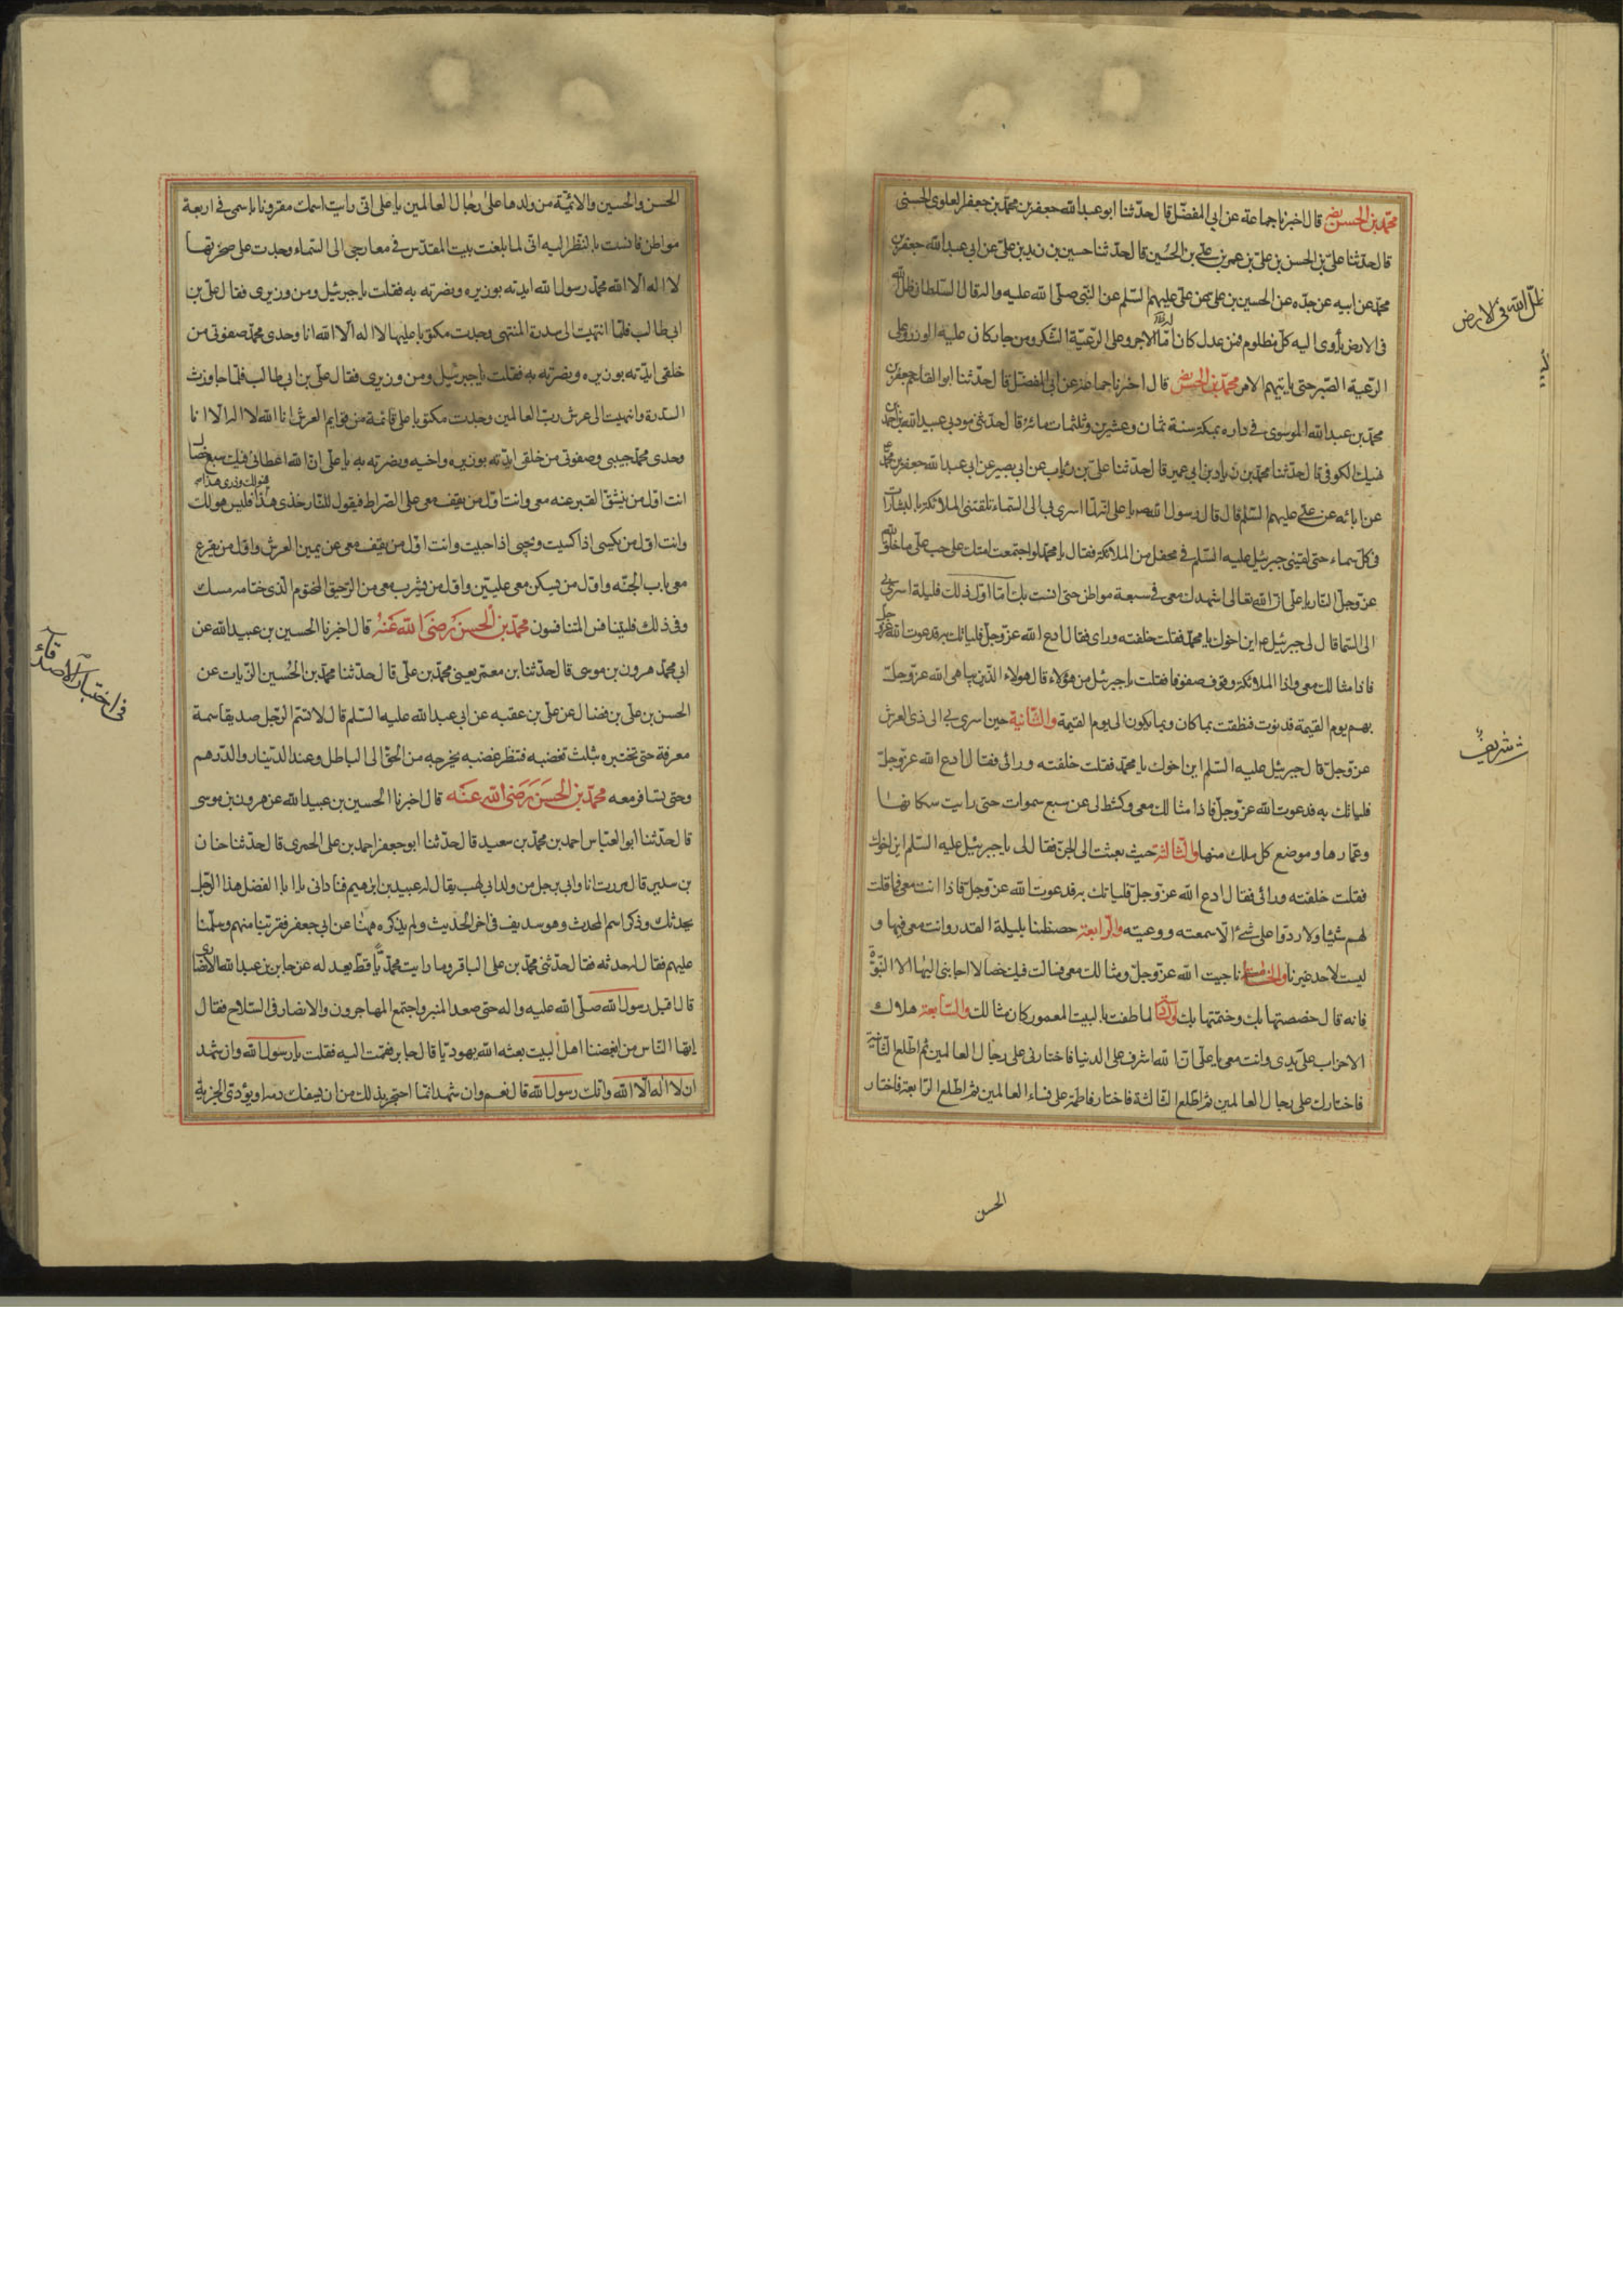 محمّد بن الحسن رض قال اخبرنا جماعة عن ابي المفضّل قال حدّثنا ابو عبد الله جعفر بن محمّد بن جعفر العلوى الحسنى
قال حدّثنا علىّ بن الحسن بن علىّ بن عمر بن علي بن الحُسين قال حدّثنا حسين بن زيد بن علىّ عن ابي عبد الله جعفر بن
محمّد عن ابيه عن جدّه عن الحسين بن على عن علىّ عليهم السّلم عن النّبى صلّى الله عليه واله قال السّلطان ظلّ الله
فى الارض يأوى اليه كلّ مظلوم فمن عدل كان له الاجر وعلى الرّعيّة الشّكر ومن جار كان عليه الوزر وعلى
الرّعية الصّبر حتى ياتيهم الامر محمّد بن الحسن رض قال اخبرنا جماعة عن ابى المفضّل قال حدّثنا ابو القاسم جعفر بن
محمّد بن عبد الله الموسوى فى داره بمكة سنة ثمان وعشرين وثلثمائة قال حدّثنى مودبى عبيد الله بن احمد
نهيك الكوفى قال حدّثنا محمّد بن زياد بن ابى عمير قال حدّثنا علىّ بن رئاب عن ابى بصير عن ابى عبد الله جعفر بن محمّد
عن ابائه عن علي عليهم السّلم قال قال رسول الله ص يا على انّه لمّا اسرى بى الى السّماء تلقتنى الملائكة بالبشارات
فى كلّ سماء حتى لقينى جبرئيل عليه السّلم فى محفل من الملائكة فقال يا محمّد لو اجتمعت امتك على حب علىّ ما خلق الله
عزّ وجلّ النّار يا علىّ انّ الله تعالى اشهدك معى فى سبعة مواطن حتى انست بك امّا اوّل ذلك فليلة اسرى بى
الى السّما قال لى جبرئيل ع اين اخوك يا محمّد فقلت خلفته وراى فقال ادع الله عزّ وجلّ فلياتك به فدعوت الله عزّ وجلّ
فاذا مثالك معى واذا الملائكة وقوف صفوفا فقلت يا جبرئيل من هؤلاء قال هولاء الّذين يباهى الله عزّ وجلّ
بهم يوم القيمة فدنوت فنطقت بما كان وبما يكون الى يوم القيمة والثّانية حين اسرى بى الى ذى العرش
عزّ وجلّ قال جبرئيل عليه السّلم اين اخوك يا محمّد فقلت خلفته ورائى فقال ادع الله عزّ وجلّ
فلياتك به فدعوت الله عزّ وجلّ فاذا مثالك معى وكشط لى عن سبع سموات حتى رايت سكانها
وعمّارها وموضع كل ملك منها والثّالثة حيث بعثت الى الجنّ فقال لى يا جبرئيل عليه السّلم اين اخوك
فقلت خلفته ورائى فقال ادع الله عزّ وجلّ فلياتك به فدعوت الله عزّ وجلّ فاذا انت معى فما قلت
لهم شيئا ولا ردّوا على شئ الّا سمعته ووعيته والرّابعة خصّصنا بليلة القدر وانت معى فيها و
ليست لاحد غيرنا والخامسة ناجيت الله عزّ وجلّ ومثالك معى فسالت فيك خصالا اجابنى اليها الا النّبوّة
فانه قال خصصتها بك وختمتها بك والسّادسة لما طفت بالبيت المعمور كان مثالك والسّابعة هلاك
الاحزاب على يدى وانت معى يا علىّ انّ الله اشرف على الدنيا فاختارنى على رجال العالمين ثم اطّلع الثّانية
فاختارك على رجال العالمين ثم اطّلع الثّالثة فاختار فاطمة على نساء العالمين ثم اطّلع الرّابعة فاختار
الحسن
ظلّ الله فى الارض
شريف
الحسن والحسين والائمّة من ولدها على رجال العالمين يا على انى رايت اسمك مقرونا باسمى فى اربعة
مواطن فانست بالنّظر اليه انّى لما بلغت بيت المقدّس فى معارجى الى السّماء وجدت على صخرتها
لا اله الّا الله محمّد رسول الله ايدته بوزيره ونصرته به فقلت يا جبرئيل ومن وزيرى فقال علىّ بن
ابى طالب فلمّا انتهيت الى سدرة المنتهى وجدت مكتوبا عليها لا اله الّا الله انا وحدى محمّد صفوتى من
خلقى ايّدته بوزيره ونصرته به فقلت يا جبرئيل ومن وزيرى فقال علىّ بن ابى طالب فلمّا جاوزت
السّدرة وانتهيت الى عرش ربّ العالمين وجدت مكتوبا على قائمة من قوايم العرش انا الله لا اله الّا انا
وحدى محمّد حبيبى وصفوتى من خلقى ايّدته بوزيره واخيه ونصرته به يا علىّ انّ الله اعطانى فيك سبع خصال
انت اوّل من ينشقّ القبر عنه معى وانت اوّل من يقف معى على الصّراط فيقول للنّار خذى هذا فليس هو لك
وانت اوّل من يكسى اذا كسيت ويحيى اذا حييت وانت اوّل من يقف معى عن يمين العرش واوّل من يقرع
معى باب الجنّه واوّل من يسكن معى عليّين واوّل من يشرب معى من الرّحيق المختوم الّذى ختامه مسك
وفى ذلك فليتنافس المتنافسون محمّد بن الحسن رضى الله عنه قال اخبرنا الحسين بن عبيد الله عن
ابى محمّد هرون بن موسى قال حدّثنا بن معمر يعنى محمّد بن على قال حدّثنا محمّد بن الحُسين الزّيات عن
الحسن بن على بن فضال عن علىّ بن عقبه عن ابى عبد الله عليه السّلم قال لا تسّم الرّجل صديقا سمة
معرفة حتى تختبره بثلث تغضبه فتنظر غضبه يخرجه من الحقّ الى الباطل وعند الدّينار والدّرهم
وحتى تسافر معه محمّد بن الحسن رضى الله عنه قال اخبرنا الحسين بن عبيد الله عن هرون بن موسى
قال حدّثنا ابو العبّاس احمد بن محمّد بن سعيد قال حدّثنا ابو جعفر احمد بن على الحمرى قال حدّثنا حنان
بن سدير قال مررت انا وابى برجل من ولد ابى لهب يقال له عبيد بن ابرهيم فنادانى يا ابا الفضل هذا الرّجل
يحدثك وذكر اسم المحدث وهو سديف فى اخر الحديث ولم يذكره ههنا عن ابى جعفر فقربنا منهم وسلّمنا
عليهم فقال له حدثه فقال حدّثنى محمّد بن على الباقر وما رايت محمّديّا قطّ يعدله عن جابر بن عبد الله الانصارى
قال اقبل رسول الله صلّى الله عليه واله حتى صعد المنبر واجتمع المهاجرون والانصار فى السّلاح فقال
ايّها النّاس من ابغضنا اهل البيت بعثه الله يهوديّا قال جابر فقمت اليه فقلت يا رسول الله وان شهد
ان لا اله الّا الله وانّك رسول الله قال نعم وان شهد انّما احتجر بذلك من ان يسفك دمه او يؤدّى الجزية
فى اختيار الاصدقاء